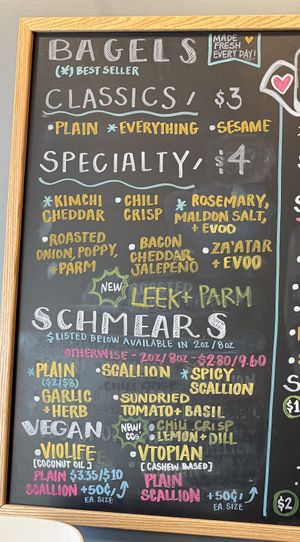 BAGELS
MADE
FRESH
EVERY DAY!
(*) BEST SELLER
CLASSICS / $3
•PLAIN *EVERYTHING •SESAME
SPECIALTY / $4
*KIMCHI
CHEDDAR
•CHILI
CRISP
*ROSEMARY,
MALDON SALT,
+ EVOO
•ROASTED
ONION, POPPY,
+ PARM
•BACON
CHEDDAR
JALEPEÑO
•ZA'ATAR
+ EVOO
NEW LEEK + PARM
SCHMEARS
$ LISTED BELOW AVAILABLE IN 2OZ/8OZ
OTHERWISE - 2OZ/8OZ - $2.80/9.60
*PLAIN
($2/$8)
•SCALLION
*SPICY
SCALLION
•GARLIC
+ HERB
•SUNDRIED
TOMATO + BASIL
VEGAN
NEW! •CHILI CRISP
•LEMON + DILL
•VIOLIFE
[COCONUT OIL]
PLAIN $3.35/$10
SCALLION +50¢/
EA. SIZE
•VTOPIAN
[CASHEW BASED]
PLAIN
SCALLION +50¢/
EA. SIZE
$1
$2